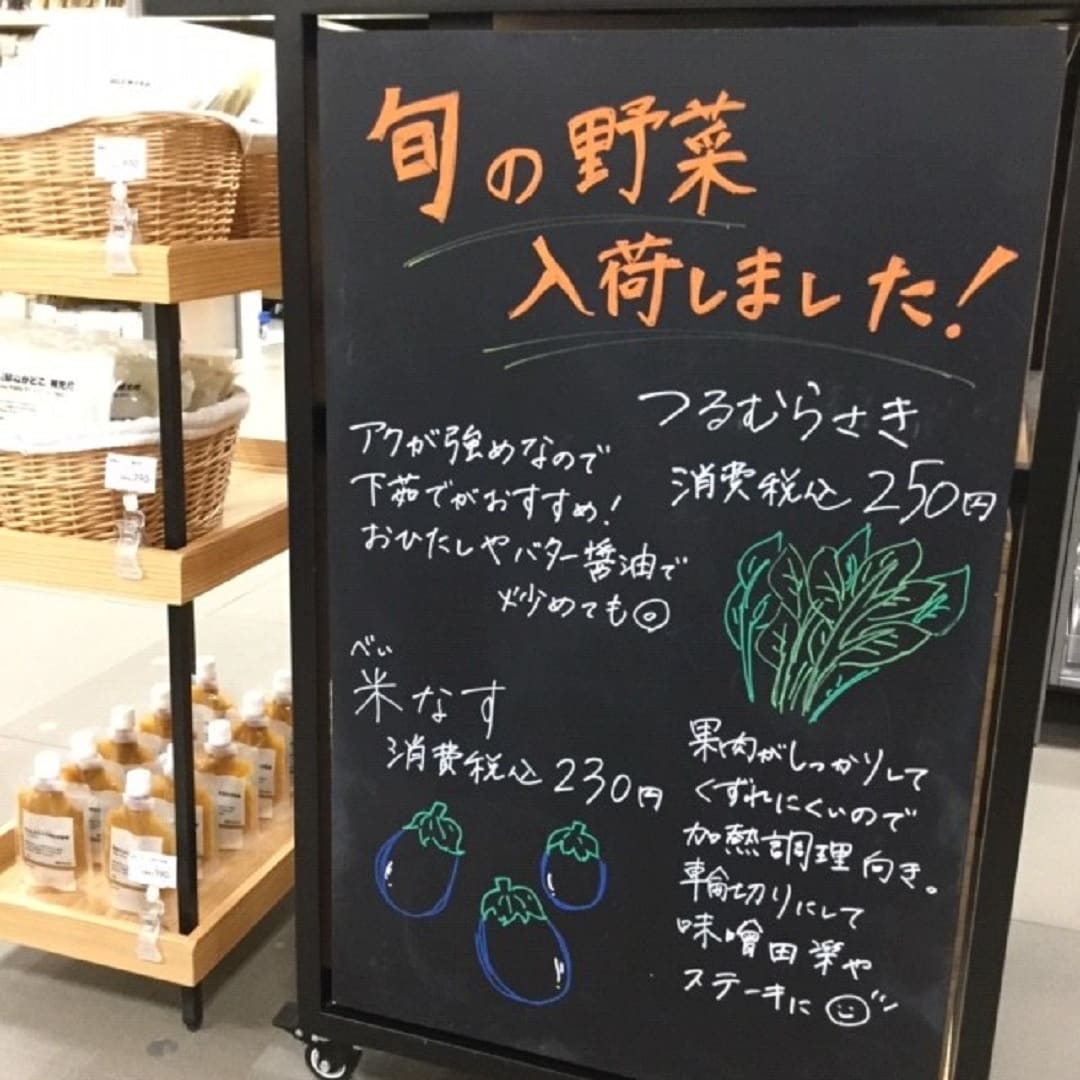 旬の野菜
入荷しました!
つるむらさき
消費税込250円
アクが強めなので
下茹でがおすすめ!
おひたしやバター醤油で
炒めても◎
べい
米なす
消費税込230円
果肉がしっかりして
くずれにくいので
加熱調理向き。
輪切りにして
味噌田楽や
ステーキに
390